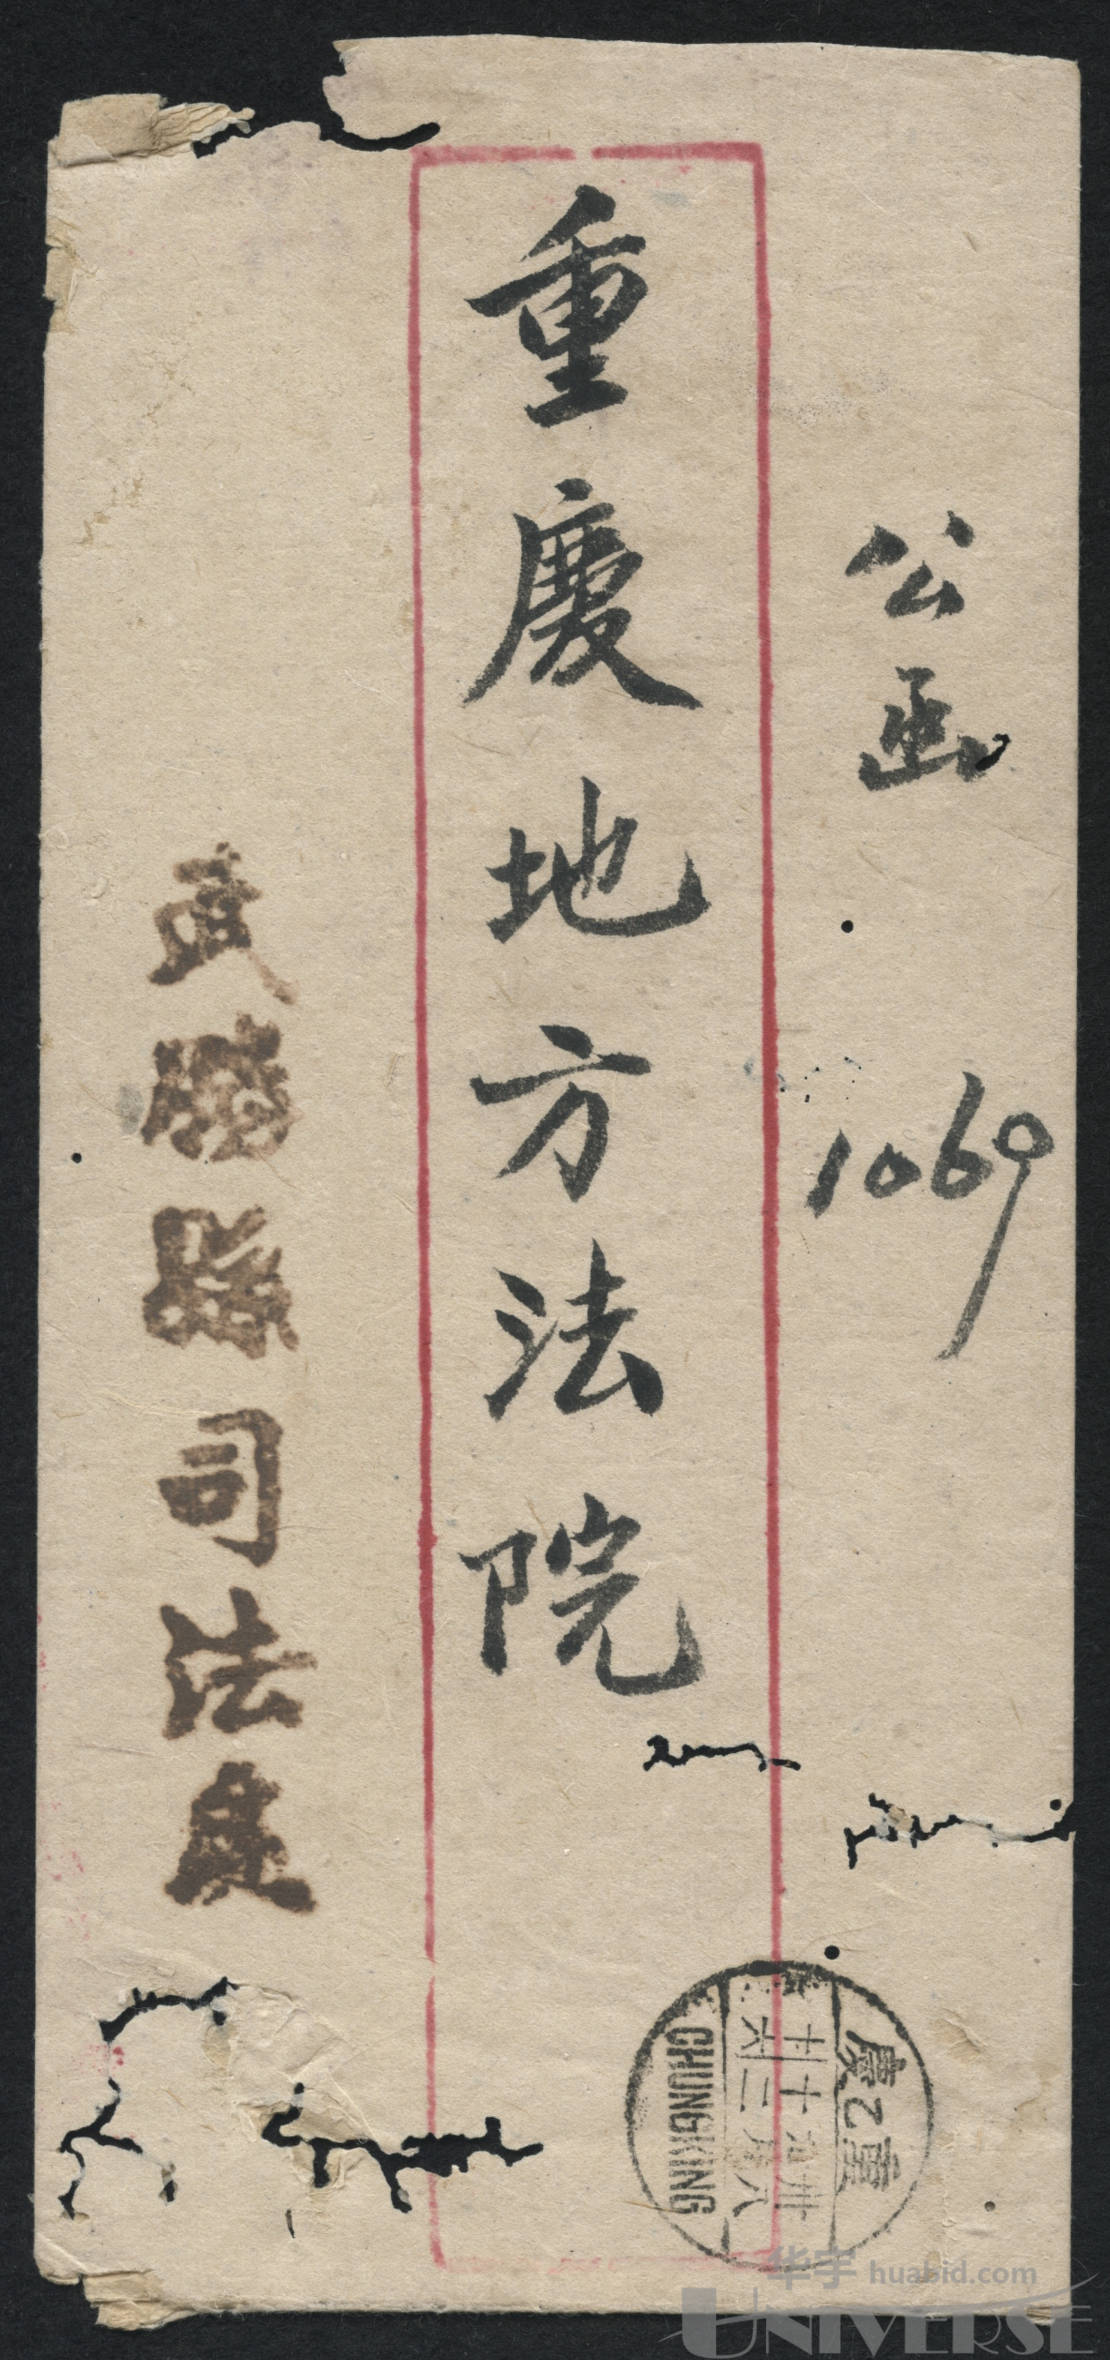 公函
1069
重慶地方法院
武勝縣司法處
重 2 慶
CHUNGKING
华宇 huabid.com
UNIVERSE